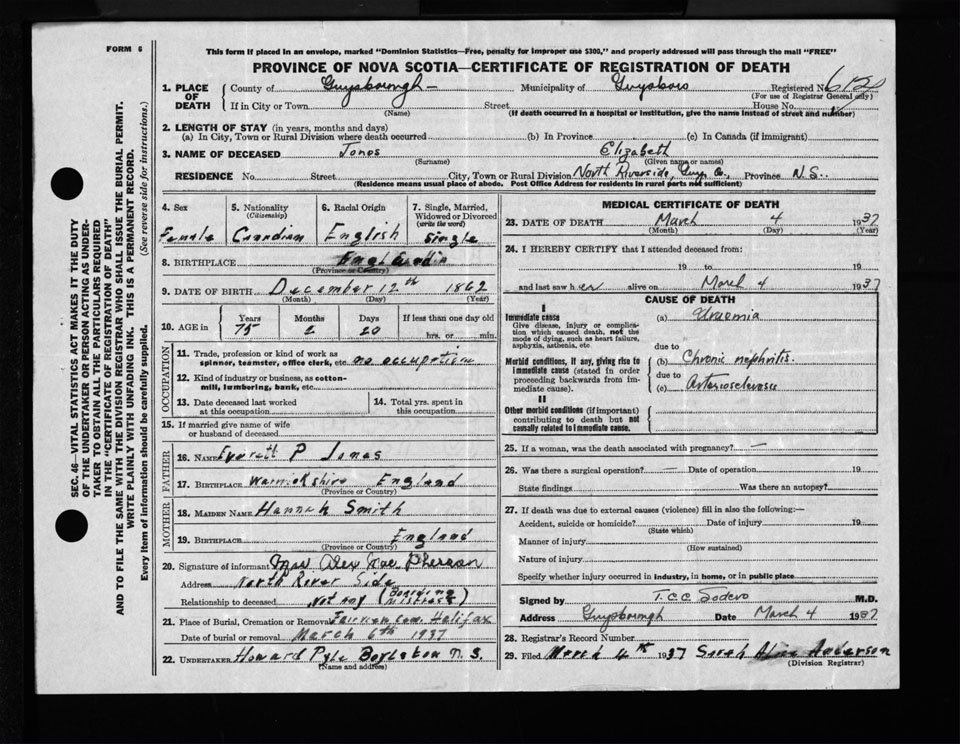 FORM 6
This form if placed in an envelope, marked "Dominion Statistics—Free, penalty for improper use $300," and properly addressed will pass through the mail "FREE"
PROVINCE OF NOVA SCOTIA—CERTIFICATE OF REGISTRATION OF DEATH
SEC. 46—VITAL STATISTICS ACT MAKES IT THE DUTY
OF THE UNDERTAKER OR PERSON ACTING AS UNDER-
TAKER TO OBTAIN ALL THE PARTICULARS REQUIRED
IN THE "CERTIFICATE OF REGISTRATION OF DEATH"
AND TO FILE THE SAME WITH THE DIVISION REGISTRAR WHO SHALL ISSUE THE BURIAL PERMIT.
WRITE PLAINLY WITH UNFADING INK. THIS IS A PERMANENT RECORD.
Every item of information should be carefully supplied. (See reverse side for instructions.)
1. PLACE OF DEATH
County of Guysborough - Municipality of Guysboro Registered No.
(For use of Registrar General only)
If in City or Town Street House No.
(Name) (If death occurred in a hospital or institution, give the name instead of street and number)
2. LENGTH OF STAY (in years, months and days)
(a) In City, Town or Rural Division where death occurred (b) In Province (c) In Canada (if immigrant)
3. NAME OF DECEASED Jones Elizabeth
(Surname) (Given name or names)
RESIDENCE No. Street City, Town or Rural Division North Riverside, Guy. Co., Province N.S.
(Residence means usual place of abode. Post Office Address for residents in rural parts not sufficient)
4. Sex
Female
5. Nationality
(Citizenship)
Canadian
6. Racial Origin
English
7. Single, Married,
Widowed or Divorced
(write the word)
Single
8. BIRTHPLACE
(Province or Country)
9. DATE OF BIRTH December 12th 1862
(Month) (Day) (Year)
10. AGE in
Years Months Days If less than one day old
75 2 20 hrs. or min.
OCCUPATION
11. Trade, profession or kind of work as
spinner, teamster, office clerk, etc. no occupation
12. Kind of industry or business, as cotton-
mill, lumbering, bank, etc.
13. Date deceased last worked
at this occupation
14. Total yrs. spent in
this occupation
15. If married give name of wife
or husband of deceased
FATHER
16. NAME Everett P Jones
17. BIRTHPLACE Warrickshire England
(Province or Country)
MOTHER
18. MAIDEN NAME Hannah Smith
19. BIRTHPLACE England
(Province or Country)
20. Signature of informant Mrs Alex MacPherson
Address North River Side
Relationship to deceased Not any (Boarding Mistress)
21. Place of Burial, Cremation or Removal Fairview Cem. Halifax
Date of burial or removal March 6th 1937
22. UNDERTAKER Howard Pyle Boylston N.S.
(Name and address)
MEDICAL CERTIFICATE OF DEATH
23. DATE OF DEATH March 4 1937
(Month) (Day) (Year)
24. I HEREBY CERTIFY that I attended deceased from:
19 to 19
and last saw her alive on March 4 1937
CAUSE OF DEATH
I
Immediate cause
Give disease, injury or complica-
tion which caused death, not the
mode of dying, such as heart failure,
asphyxia, asthenia, etc.
(a) Uraemia
due to
Morbid conditions, if any, giving rise to
immediate cause (stated in order
proceeding backwards from im-
mediate cause).
(b) Chronic nephritis.
due to
(c) Arteriosclerosis
II
Other morbid conditions (if important)
contributing to death but not
causally related to immediate cause.
25. If a woman, was the death associated with pregnancy? —
26. Was there a surgical operation? — Date of operation 19
State findings Was there an autopsy?
27. If death was due to external causes (violence) fill in also the following:—
Accident, suicide or homicide? Date of injury 19
(State which)
Manner of injury
(How sustained)
Nature of injury
Specify whether injury occurred in industry, in home, or in public place
Signed by T.C.C. Sodero M.D.
Address Guysborough Date March 4 1937
28. Registrar's Record Number
29. Filed March 4th 1937 Sarah Anderson
(Division Registrar)